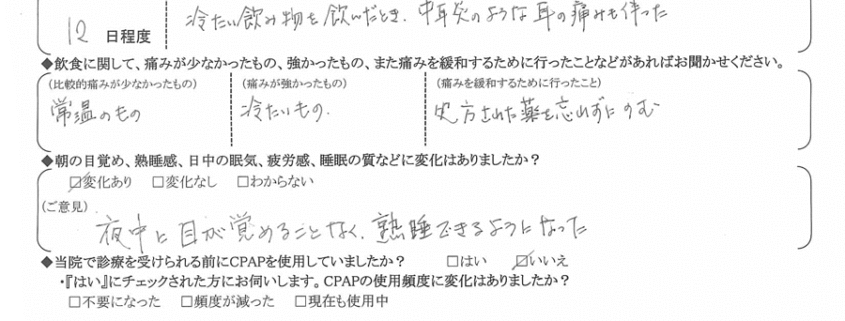 冷たい飲み物を飲んだとき、中耳炎のような耳の痛みも伴った
12 日程度
◆飲食に関して、痛みが少なかったもの、強かったもの、また痛みを緩和するために行ったことなどがあればお聞かせください。
(比較的痛みが少なかったもの) (痛みが強かったもの) (痛みを緩和するために行ったこと)
常温のもの 冷たいもの. 処方された薬を忘れずにのむ
◆朝の目覚め、熟睡感、日中の眠気、疲労感、睡眠の質などに変化はありましたか?
☑変化あり □変化なし □わからない
(ご意見)
夜中に目が覚めることなく、熟睡できるようになった
◆当院で診療を受けられる前にCPAPを使用していましたか? □はい ☑いいえ
・『はい』にチェックされた方にお伺いします。CPAPの使用頻度に変化はありましたか?
□不要になった □頻度が減った □現在も使用中